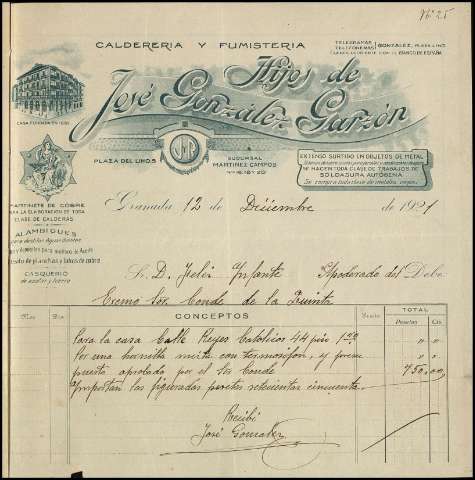 Nº 25
CALDERERIA Y FUMISTERIA
TELEGRAMAS
TELEFONEMAS GONZALEZ,
BANCO DE ESPAÑA
Hijos de
José González Garzón
CASA FUNDADA EN
PLAZA DEL LINO.5
SUCURSAL
MARTINEZ CAMPOS
EXTENSO SURTIDO EN OBJETOS DE METAL
SE HACEN TODA CLASE DE TRABAJOS DE
SOLDADURA AUTÓGENA
Se compra toda clase de metales viejos.
MARTINETE DE COBRE
PARA LA ELABORACION DE TODA
CLASE DE CALDERAS
ALAMBIQUES
para destilar Aguardientes
Depósito de planchas y tubos de cobre
CASQUERIO
Granada 12 de Diciembre de 1921
S. D. Felix Ynfante Apoderado del Debe
Excmo Sor. Conde de la Quinta
CONCEPTOS
TOTAL
Pesetas Cts
Para la casa Calle Reyes Catolicos 44 piso 1º
Por una hornilla mixta con termosifon, y presu
puesto aprobado por el Sor Conde 750,00
Importan las figuradas pesetas setecientas cincuenta
Recibi
José Gonzalez